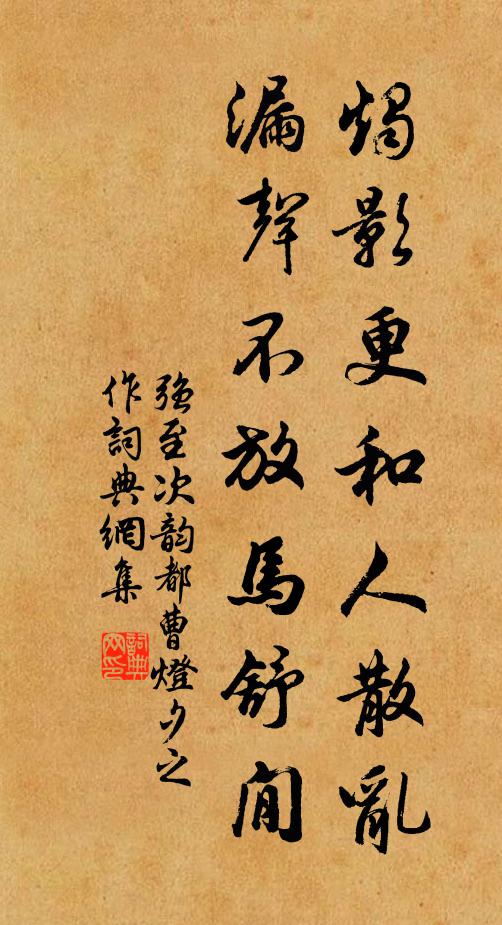 燭影更和人散亂
漏聲不放馬舒閒
強至次韵都曹燈夕之
作詞典網集
詞典網印